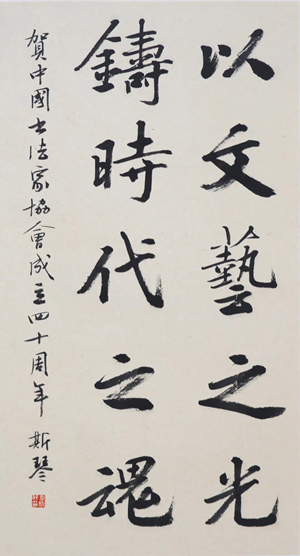 以文藝之光
鑄時代之魂
賀中國书法家協會成立四十周年 斯琴